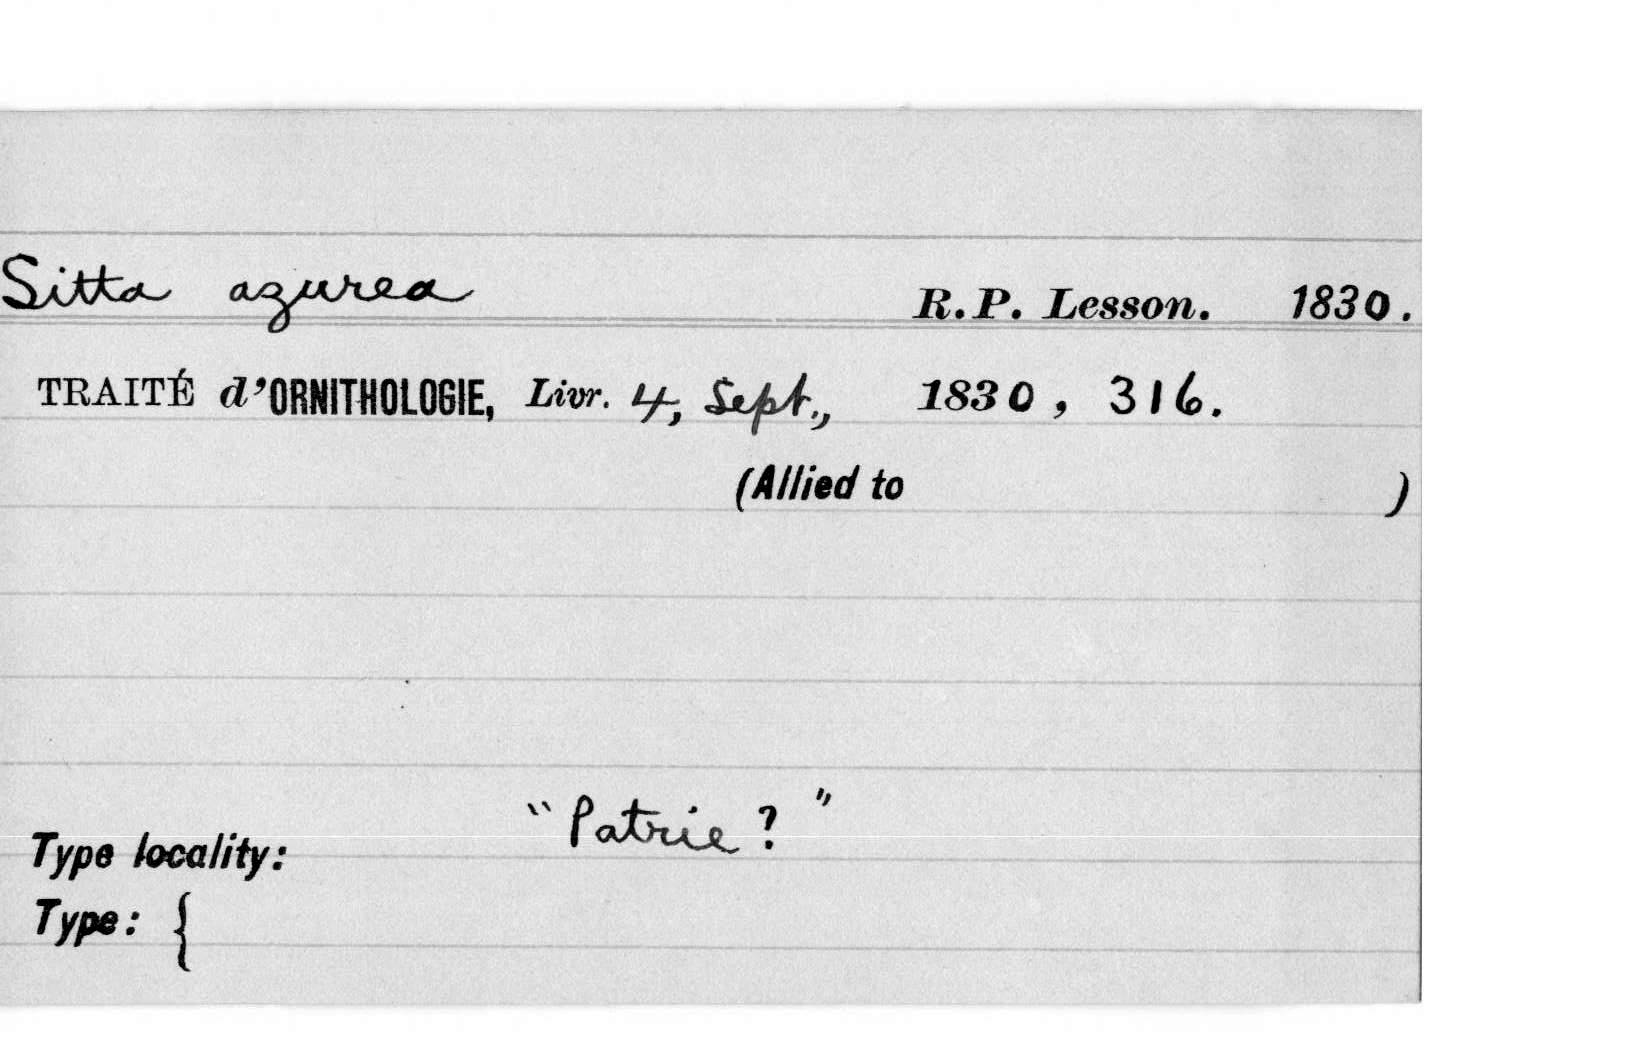 Sitta azurea R. P. Lesson. 1830.
TRAITÉ d'ORNITHOLOGIE, Livr. 4, Sept., 1830, 316.
(Allied to )
"Patrie?"
Type locality:
Type: {